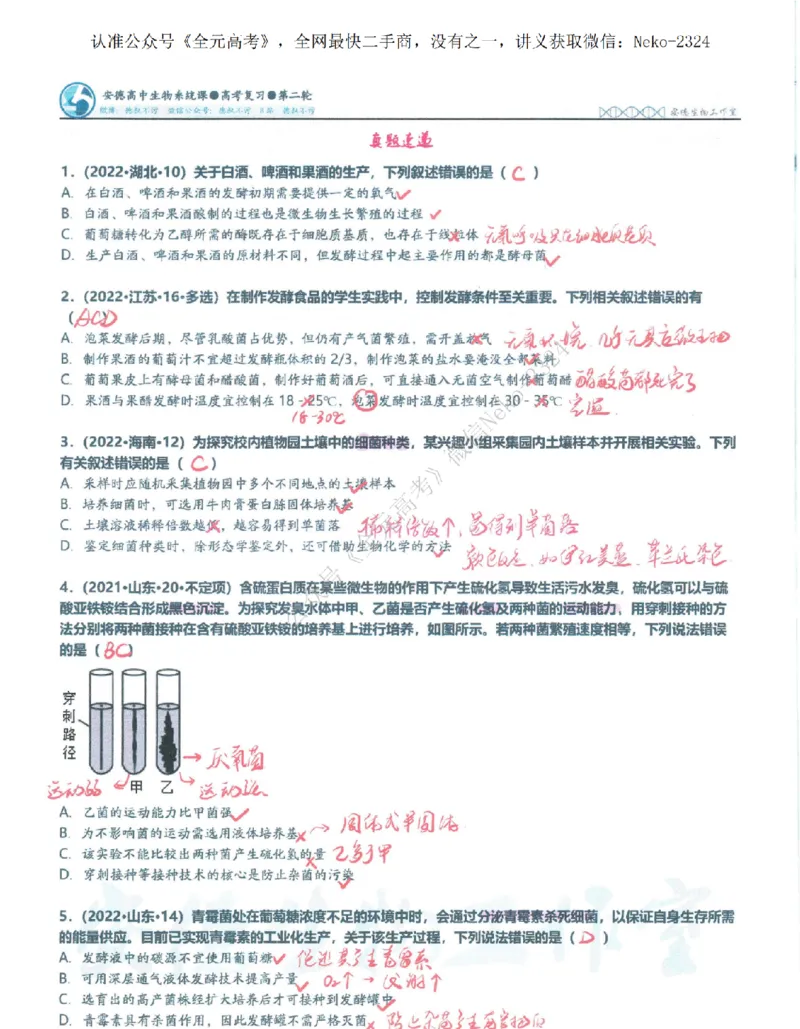 认准公众号《全元高考》，全网最快二手商，没有之一，讲义获取微信：Neko-2324
安德高中生物系统课●高考复习●第二轮
微博：德叔不污 微信公众号：德叔不污 B站：德叔不污
安德生物工作室
真题速递
1．（2022•湖北•10）关于白酒、啤酒和果酒的生产，下列叙述错误的是（ C ）
A．在白酒、啤酒和果酒的发酵初期需要提供一定的氧气✓
B．白酒、啤酒和果酒酿制的过程也是微生物生长繁殖的过程 ✓
C．葡萄糖转化为乙醇所需的酶既存在于细胞质基质，也存在于线粒体 无氧呼吸只在细胞质基质
D．生产白酒、啤酒和果酒的原材料不同，但发酵过程中起主要作用的都是酵母菌✓
2．（2022•江苏•16•多选）在制作发酵食品的学生实践中，控制发酵条件至关重要。下列相关叙述错误的有
（ACD）
A．泡菜发酵后期，尽管乳酸菌占优势，但仍有产气菌繁殖，需开盖放气 无氧环境
B．制作果酒的葡萄汁不宜超过发酵瓶体积的 2/3，制作泡菜的盐水要淹没全部菜料
C．葡萄果皮上有酵母菌和醋酸菌，制作好葡萄酒后，可直接通入无菌空气制作葡萄醋 醋酸菌都死完了
D．果酒与果醋发酵时温度宜控制在 18 - 25℃，泡菜发酵时温度宜控制在 30 - 35℃ 室温
18-30℃
3．（2022•海南•12）为探究校内植物园土壤中的细菌种类，某兴趣小组采集园内土壤样本并开展相关实验。下列
有关叙述错误的是（ C ）
A．采样时应随机采集植物园中多个不同地点的土壤样本
B．培养细菌时，可选用牛肉膏蛋白胨固体培养基
C．土壤溶液稀释倍数越低，越容易得到单菌落 稀释倍数↑，易得到单菌落
D．鉴定细菌种类时，除形态学鉴定外，还可借助生物化学的方法✓ 颜色反应，如伊红美蓝、革兰氏染色
公众号《全元高考》微信Neko-2324
4．（2021•山东•20•不定项）含硫蛋白质在某些微生物的作用下产生硫化氢导致生活污水发臭，硫化氢可以与硫
酸亚铁铵结合形成黑色沉淀。为探究发臭水体中甲、乙菌是否产生硫化氢及两种菌的运动能力，用穿刺接种的方
法分别将两种菌接种在含有硫酸亚铁铵的培养基上进行培养，如图所示。若两种菌繁殖速度相等，下列说法错误
的是（BC）
穿刺路径
→ 厌氧菌
运动弱 甲 乙 运动强
A．乙菌的运动能力比甲菌强✓
B．为不影响菌的运动需选用液体培养基✗ → 固体或半固体
C．该实验不能比较出两种菌产生硫化氢的量 乙多于甲
D．穿刺接种等接种技术的核心是防止杂菌的污染✓
5．（2022•山东•14）青霉菌处在葡萄糖浓度不足的环境中时，会通过分泌青霉素杀死细菌，以保证自身生存所需
的能量供应。目前已实现青霉素的工业化生产，关于该生产过程，下列说法错误的是（ D ）
A．发酵液中的碳源不宜使用葡萄糖✓ 促进其产生青霉素
B．可用深层通气液体发酵技术提高产量✓ O₂↑ →
C．选育出的高产菌株经扩大培养后才可接种到发酵罐中✓
D．青霉素具有杀菌作用，因此发酵罐不需严格灭菌✗ 防止杂菌